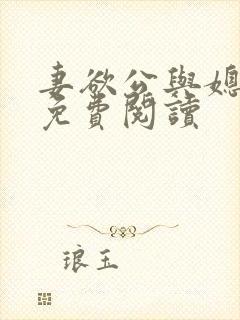 妻欲公與媳
免費閱讀
琅玉